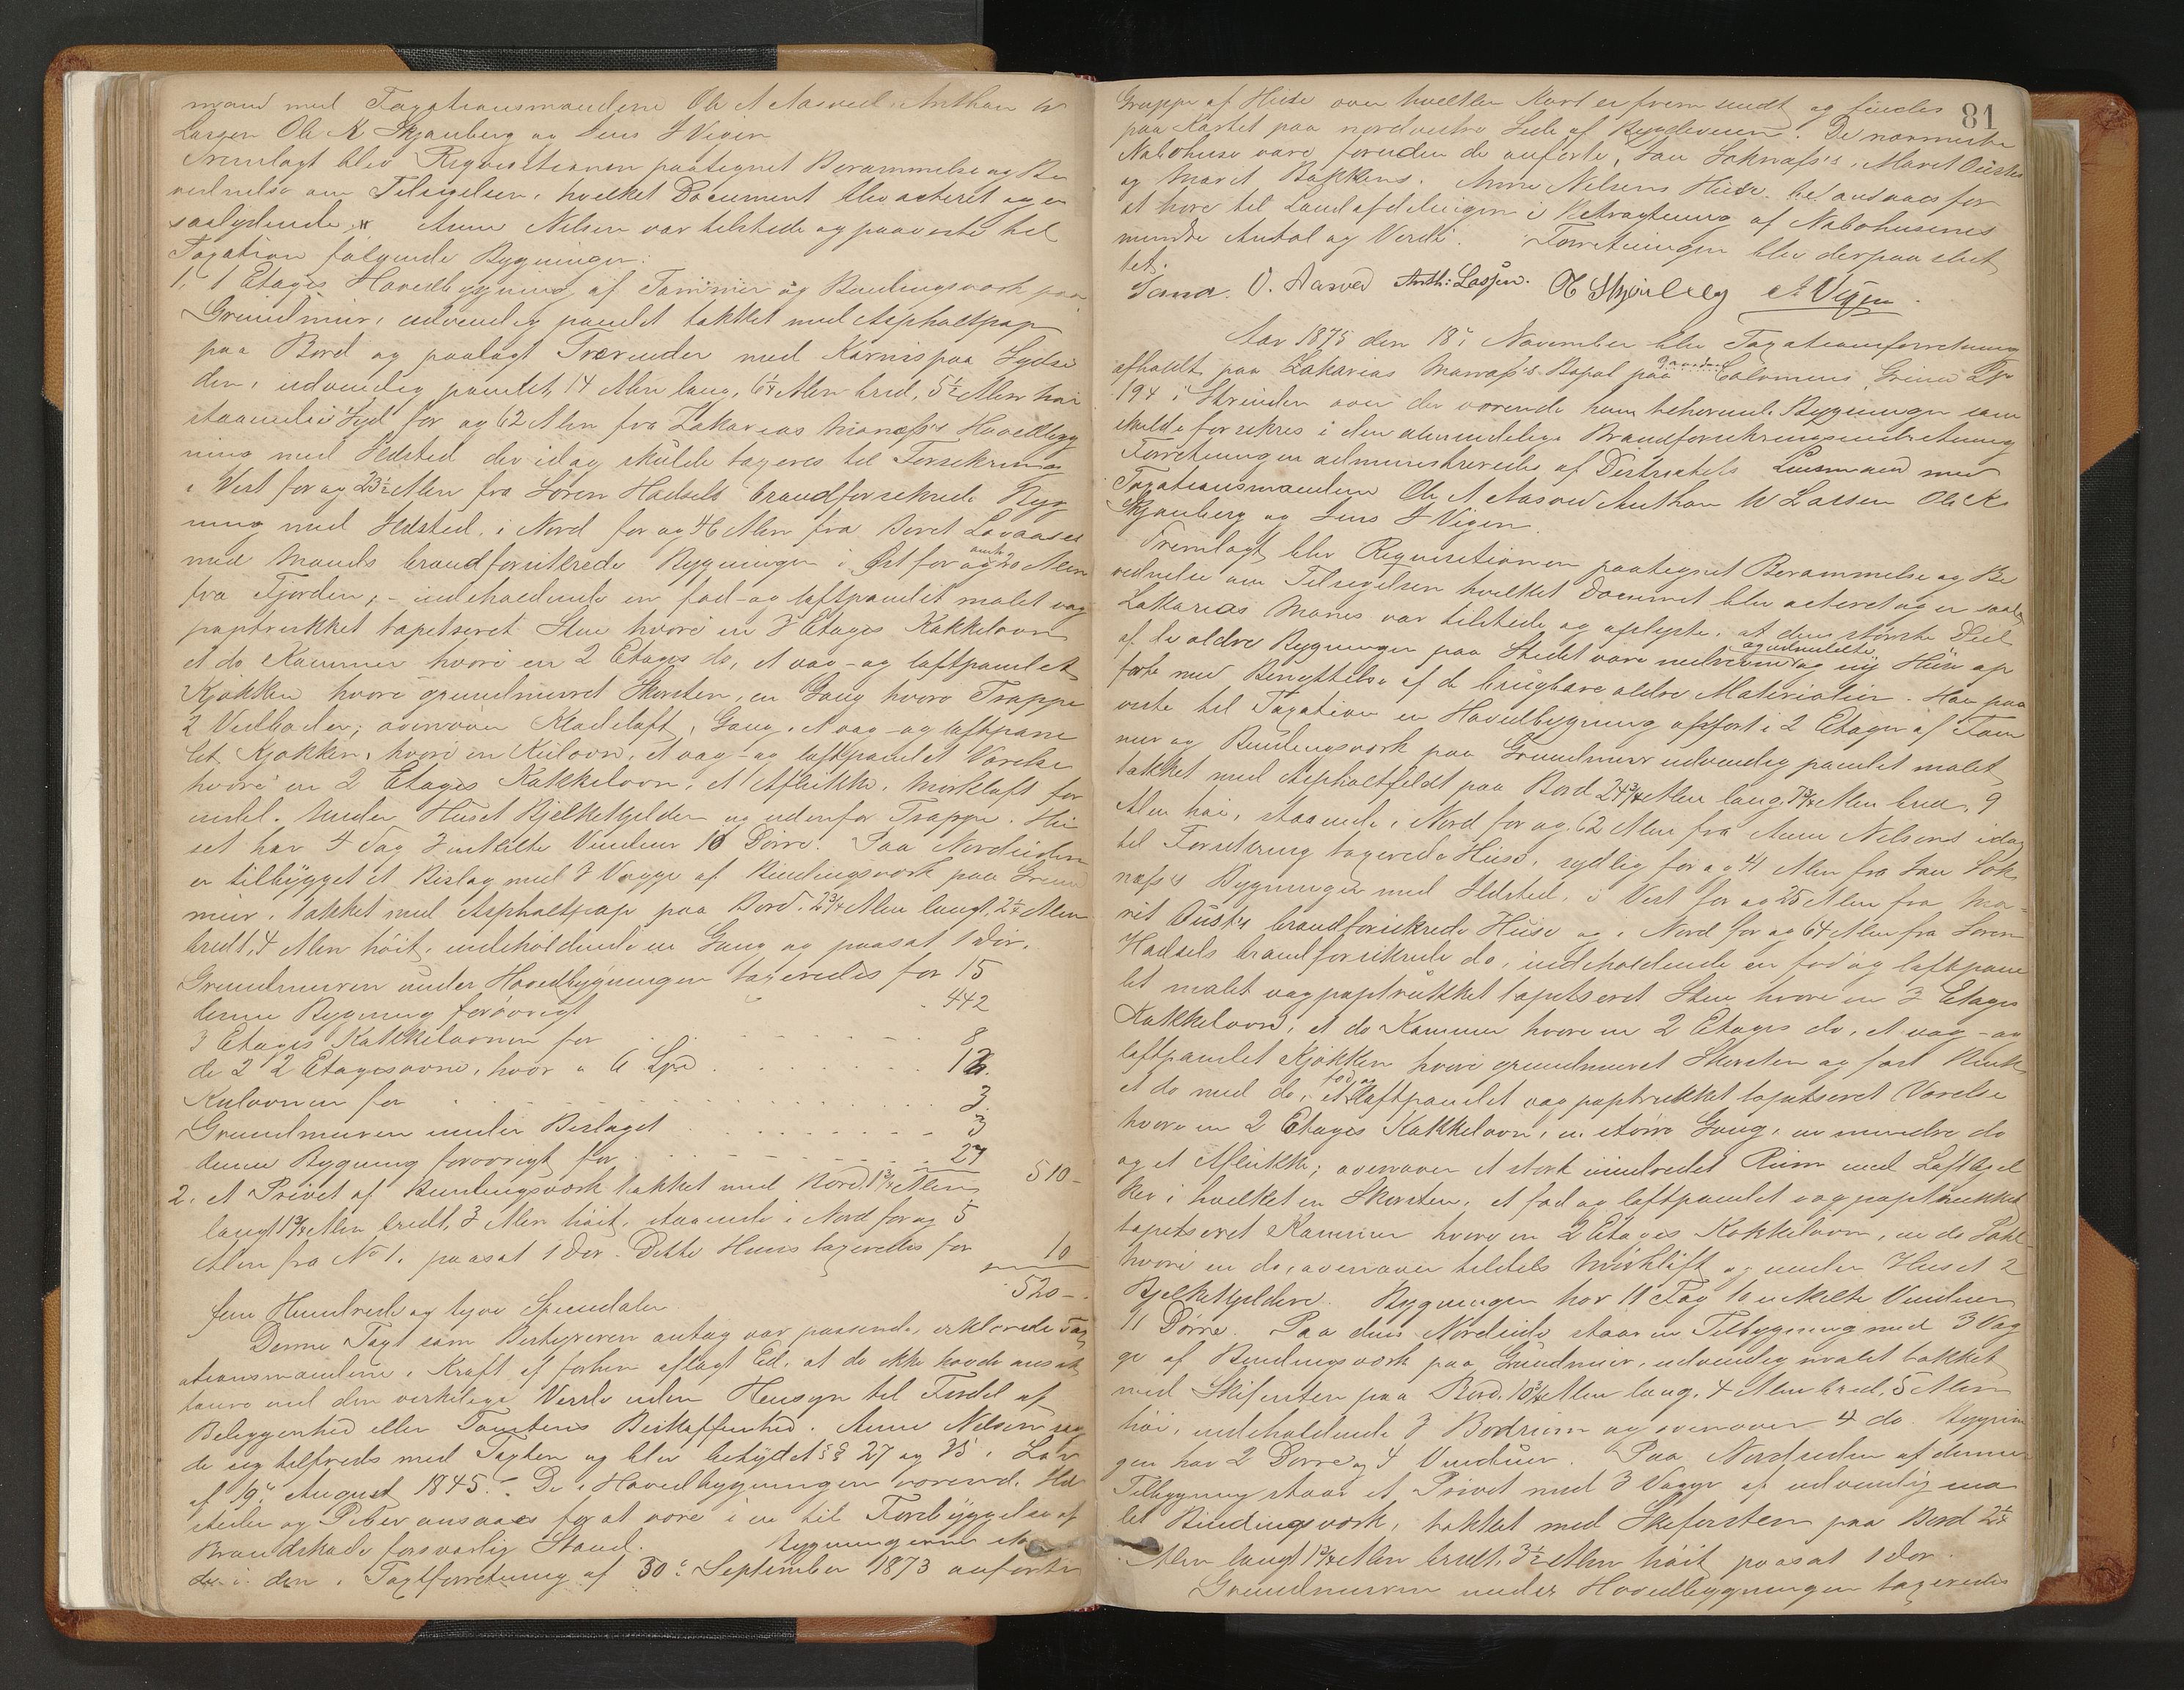 mand med Taxationsmændene Ole A Aasved Anthon W
Larsen Ole K Skjønberg og Jens J Vigen
Fremlagt blev Reqvisitionen paategnet Berammelse og Be
vidnelse om Tilsigelsen, hvilket Document blev acteret og er
saalydende. Anne Nilsen var tilstede og paaviste til
Taxation følgende Bygninger:
1, 1 Etages Hovedbygning af Tømmer og Bindingsværk paa
Grundmur, udvendig panelet takket med Asphaltpap
paa Bord og paalagt Trærender med Karnis paa Sydsi
den, udvendig panelet, 14 Alen lang, 6¼ Alen bred, 5½ Alen høi
staaende i Syd for og 62 Alen fra Zakarias Manass's Hovedbyg
ning med Ildsted der idag skulde taxeres til Forsikring
i Vest for og 23½ Alen fra Søren Hadsels brandforsikrede Byg
ning med Ildsted, i Nord for og 46 Alen fra Beret Lovaases
med Mands brandforsikrede Bygninger i Øst for og 20 Alen
fra Fjorden; - indeholdende en fod- og loftpanelet malet væg
paptrukket tapetseret Stue hvori en 3 Etages Kakkelovn
et do Kammer hvori en 2 Etages do, et væg- og loftpanelet
Kjøkken hvori grundmuret Skorsten, en Gang hvori Trappe
2 Vedboder; ovenover Klædeloft, Gang, et væg- og loftpane
let Kjøkken, hvori en Kulovn, et væg- og loftpanelet Værelse
hvori en 2 Etages Kakkelovn, et Aflukke, Mørkloft for
indel. Under Huset Bjelkekjelder og udenfor Trappe. Hu
set har 4 Fag 3 enkelte Vinduer 10 Dørre. Paa Nordsiden
er tilbygget et Bislag med 3 Vægge af Bindingsværk paa Grund
mur, takket med Asphaltpap paa Bord. 2¾ Alen langt, 2¼ Alen
bredt, 4 Alen høit, indeholdende en Gang og paasat 1 Dør.
Grundmuren under Hovedbygningen taxeredes for 15
denne Bygning forøvrigt " - 442
3 Etages Kakkelovnen for . . . 8
de 2 2 Etagesovne, hver a 6 Spd . . . 12.
Kulovnen for . . . 3
Grundmuren under Bislaget . . . 3
denne Bygning forøvrigt for . . . 27 510 -
2. et Privet af Bindingsværk takket med Bord 1¾ Alen
langt 1¾ Alen bredt, 3 Alen høit, staaende i Nord for og 5
Alen fra No 1, paasat 1 Dør. Dette Huus taxeredes for 10
520 -
fem Hundrede og tyve Speciedaler
Denne Taxt som Bestyreren antog var passende, erklærede Tax
ationsmændene, i Kraft af forhen aflagt Ed, at de ikke havde ansat
høiere end den virkelige Værdi uden Hensyn til Fordel af
Beliggenhed eller Tomtens Beskaffenhed. Anne Nilsen sag
de sig tilfreds med Taxten og blev betydet §§ 27 og 35 i Lov
af 19de August 1845. De i Hovedbygningen værende Ild
steder og Piber ansaaes for at være i en til Forebyggelse af
Brandskade forsvarlig Stand. Bygningerne staa
der i den i Taxtforretning af 30te September 1873 anførte
81
Gruppe af Huse over hvilken Kart er fremsendt og findes
paa Kartet paa nordvestre Side af Bygdeveien. De nærmeste
Nabohuse vare foruden de anførte, Jan Loknæss's, Marit Øusts
og Marit Bakkens. Anne Nilsens Huse bør ansaaes for
at høre til Landafdelingen i Betragtning af Nabohusenes
mindre Antal og Værdi. Forretningen blev derpaa slut
tet.
O. Aasved Anth: Lassen. O K Skjønberg J. Vigen
Aar 1875 den 18de November blev Taxationsforretning
afholdt paa Zakarias Manass's Bopæl paa Gaarden Salomons Grind L No
194 i Strinden over der værende ham tilhørende Bygninger som
skulde forsikres i den almindelige Brandforsikringsindretning
Forretningen administreredes af Distriktets Lensmand med
Taxationsmændene Ole A Aasved Anthon W Lassen Ole K
Skjønberg og Jens J Vigen
Fremlagt blev Reqvisitionen paategnet Berammelse og Be
vidnelse om Tilsigelsen hvilket Document blev acteret og er saaly
Zakarias Manes var tilstede og oplyste, at den største Deel
af de ældre Bygninger paa Stedet vare nedrevne og udvidede og nyt Huus op
ført med Benyttelse af de brugbare ældre Materialier. Han paa
viste til Taxation en Hovedbygning opført i 2 Etager af Tøm
mer og Bindingsværk paa Grundmur udvendig panelet malet
takket med Asphaltfeldt paa Bord 24¾ Alen lang, 7¾ Alen bred, 9
Alen høi, staaende i Nord for og 62 Alen fra Anne Nilsens idag
til Forsikring taxerede Huse, sydlig for og 41 Alen fra Jan Lok
næss's Bygninger med Ildsted, i Vest for og 25 Alen fra Ma-
rit Øusts brandforsikrede Huse og i Nord for og 64 Alen fra Søren
Hadsels brandforsikrede do, indeholdende en fod og loftpane
let malet væg paptrukket tapetseret Stue hvori en 3 Etages
Kakkelovn, et do Kammer hvori en 2 Etages do, et væg- og
loftpanelet Kjøkken hvori grundmuret Skorsten og fast Bænk
et do med do, et fod og loftpanelet væg paptrukket tapetseret Værelse
hvori en 2 Etages Kakkelovn, en større Gang, en mindre do
og et Aflukke; ovenover et stort uindredet Rum med Loftbjel
ker i hvilket en Skorsten, et fod og loftpanelet væg paptrukket
tapetseret Kammer hvori en 2 Etages Kakkelovn, en do Sahl
hvori en do, ovenover tildels Mørkloft og under Huset 2
Bjelkekjeldere. Bygningen har 11 Fag 10 enkelte Vinduer
11 Dørre. Paa dens Nordside staar en Tilbygning med 3 Væg
ge af Bindingsværk paa Grundmur, udvendig malet takket
med Skifersten paa Bord, 10¾ Alen lang, 4 Alen bred, 5 Alen
høi, indeholdende 3 Bodrum og ovenover 4 do. Bygnin
gen har 2 Dørre og 4 Vinduer. Paa Nordsiden af denne
Tilbygning staar et Privet med 3 Vægge af udvendig ma
let Bindingsværk, takket med Skifersten paa Bord 2¼
Alen langt 1¾ Alen bredt, 3½ Alen høit paasat 1 Dør.
Grundmuren under Hovedbygningen taxeredes